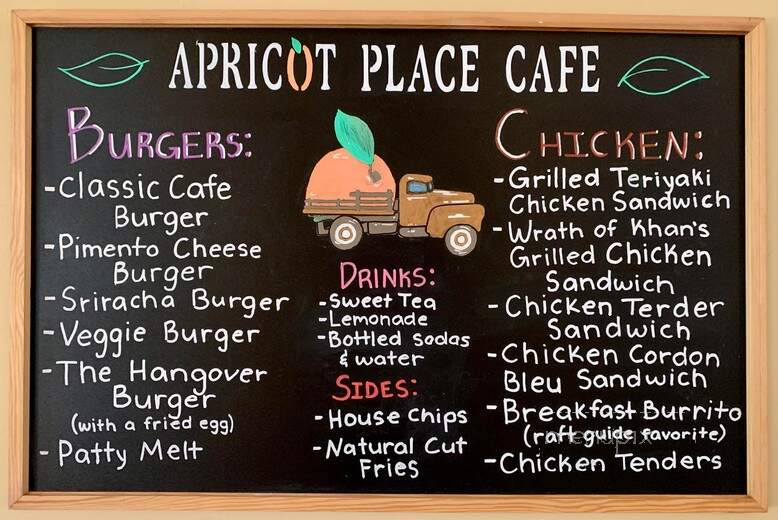 APRICOT PLACE CAFE
BURGERS:
-Classic Cafe
Burger
-Pimento Cheese
Burger
-Sriracha Burger
-Veggie Burger
-The Hangover
Burger
(with a fried egg)
-Patty Melt
DRINKS:
-Sweet Tea
-Lemonade
-Bottled sodas
& water
SIDES:
-House Chips
-Natural Cut
Fries
CHICKEN:
-Grilled Teriyaki
Chicken Sandwich
-Wrath of Khan's
Grilled Chicken
Sandwich
-Chicken Terder
Sandwich
-Chicken Cordon
Bleu Sandwich
-Breakfast Burrito
(raft guide favorite)
-Chicken Tenders